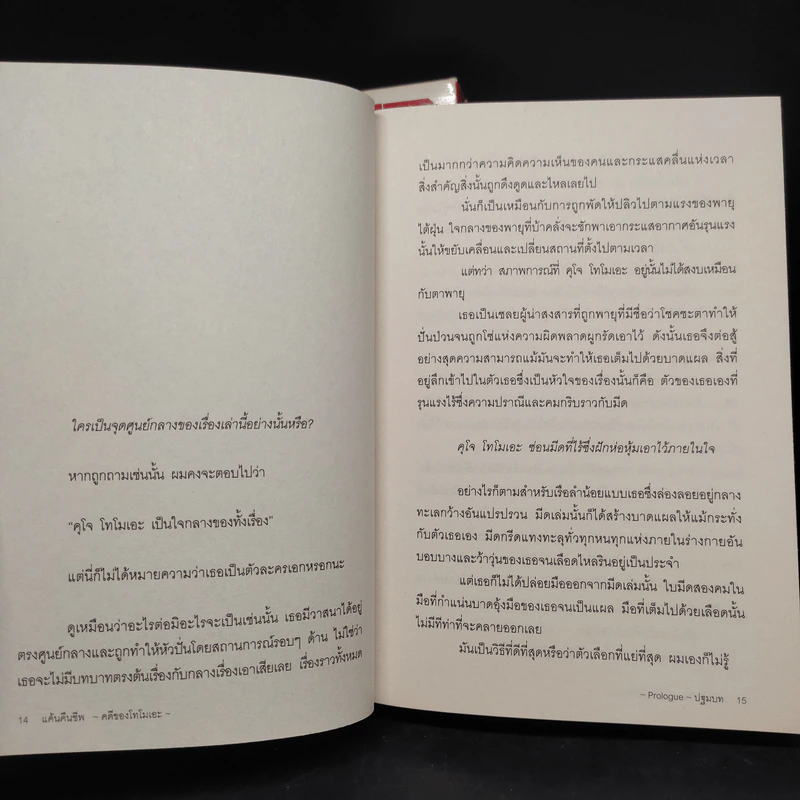 ใครเป็นจุดศูนย์กลางของเรื่องเล่านี้อย่างนั้นหรือ?
หากถูกถามเช่นนั้น ผมคงจะตอบไปว่า
“คุโจ โทโมเอะ เป็นใจกลางของทั้งเรื่อง”
แต่นี่ก็ไม่ได้หมายความว่าเธอเป็นตัวละครเอกหรอกนะ
ดูเหมือนว่าอะไรต่อมิอะไรจะเป็นเช่นนั้น เธอมีวาสนาได้อยู่
ตรงศูนย์กลางและถูกทำให้หัวปั่นโดยสถานการณ์รอบๆ ด้าน ไม่ใช่ว่า
เธอจะไม่มีบทบาทตรงต้นเรื่องกับกลางเรื่องเอาเสียเลย เรื่องราวทั้งหมด
14 แค้นคืนชีพ ~ คดีของโทโมเอะ ~
เป็นมากกว่าความคิดความเห็นของคนและกระแสคลื่นแห่งเวลา
สิ่งสำคัญสิ่งนั้นถูกดึงดูดและไหลเลยไป
นั่นก็เป็นเหมือนกับการถูกพัดให้ปลิวไปตามแรงของพายุ
ไต้ฝุ่น ใจกลางของพายุที่บ้าคลั่งจะชักพาเอากระแสอากาศอันรุนแรง
นั้นให้ขยับเคลื่อนและเปลี่ยนสถานที่ตั้งไปตามเวลา
แต่ทว่า สภาพการณ์ที่ คุโจ โทโมเอะ อยู่นั้นไม่ได้สงบเหมือน
กับตาพายุ
เธอเป็นเชลยผู้น่าสงสารที่ถูกพายุที่มีชื่อว่าโชคชะตาทำให้
ปั่นป่วนจนถูกโซ่แห่งความผิดพลาดผูกรัดเอาไว้ ดังนั้นเธอจึงต่อสู้
อย่างสุดความสามารถแม้มันจะทำให้เธอเต็มไปด้วยบาดแผล สิ่งที่
อยู่ลึกเข้าไปในตัวเธอซึ่งเป็นหัวใจของเรื่องนั้นก็คือ ตัวของเธอเองที่
รุนแรงไร้ซึ่งความปรานีและคมกริบราวกับมีด
คุโจ โทโมเอะ ซ่อนมีดที่ไร้ซึ่งฝักห่อหุ้มเอาไว้ภายในใจ
อย่างไรก็ตามสำหรับเรือลำน้อยแบบเธอซึ่งล่องลอยอยู่กลาง
ทะเลกว้างอันแปรปรวน มีดเล่มนั้นก็ได้สร้างบาดแผลให้แม้กระทั่ง
กับตัวเธอเอง มีดกรีดแทงทะลุทั่วทุกหนทุกแห่งภายในร่างกายอัน
บอบบางและว้าวุ่นของเธอจนเลือดไหลรินอยู่เป็นประจำ
แต่เธอก็ไม่ได้ปล่อยมือออกจากมีดเล่มนั้น ใบมีดสองคมใน
มือที่กำแน่นบาดอุ้งมือของเธอจนเป็นแผล มือที่เต็มไปด้วยเลือดนั้น
ไม่มีทีท่าที่จะคลายออกเลย
มันเป็นวิธีที่ดีที่สุดหรือว่าตัวเลือกที่แย่ที่สุด ผมเองก็ไม่รู้
~ Prologue ~ ปฐมบท 15